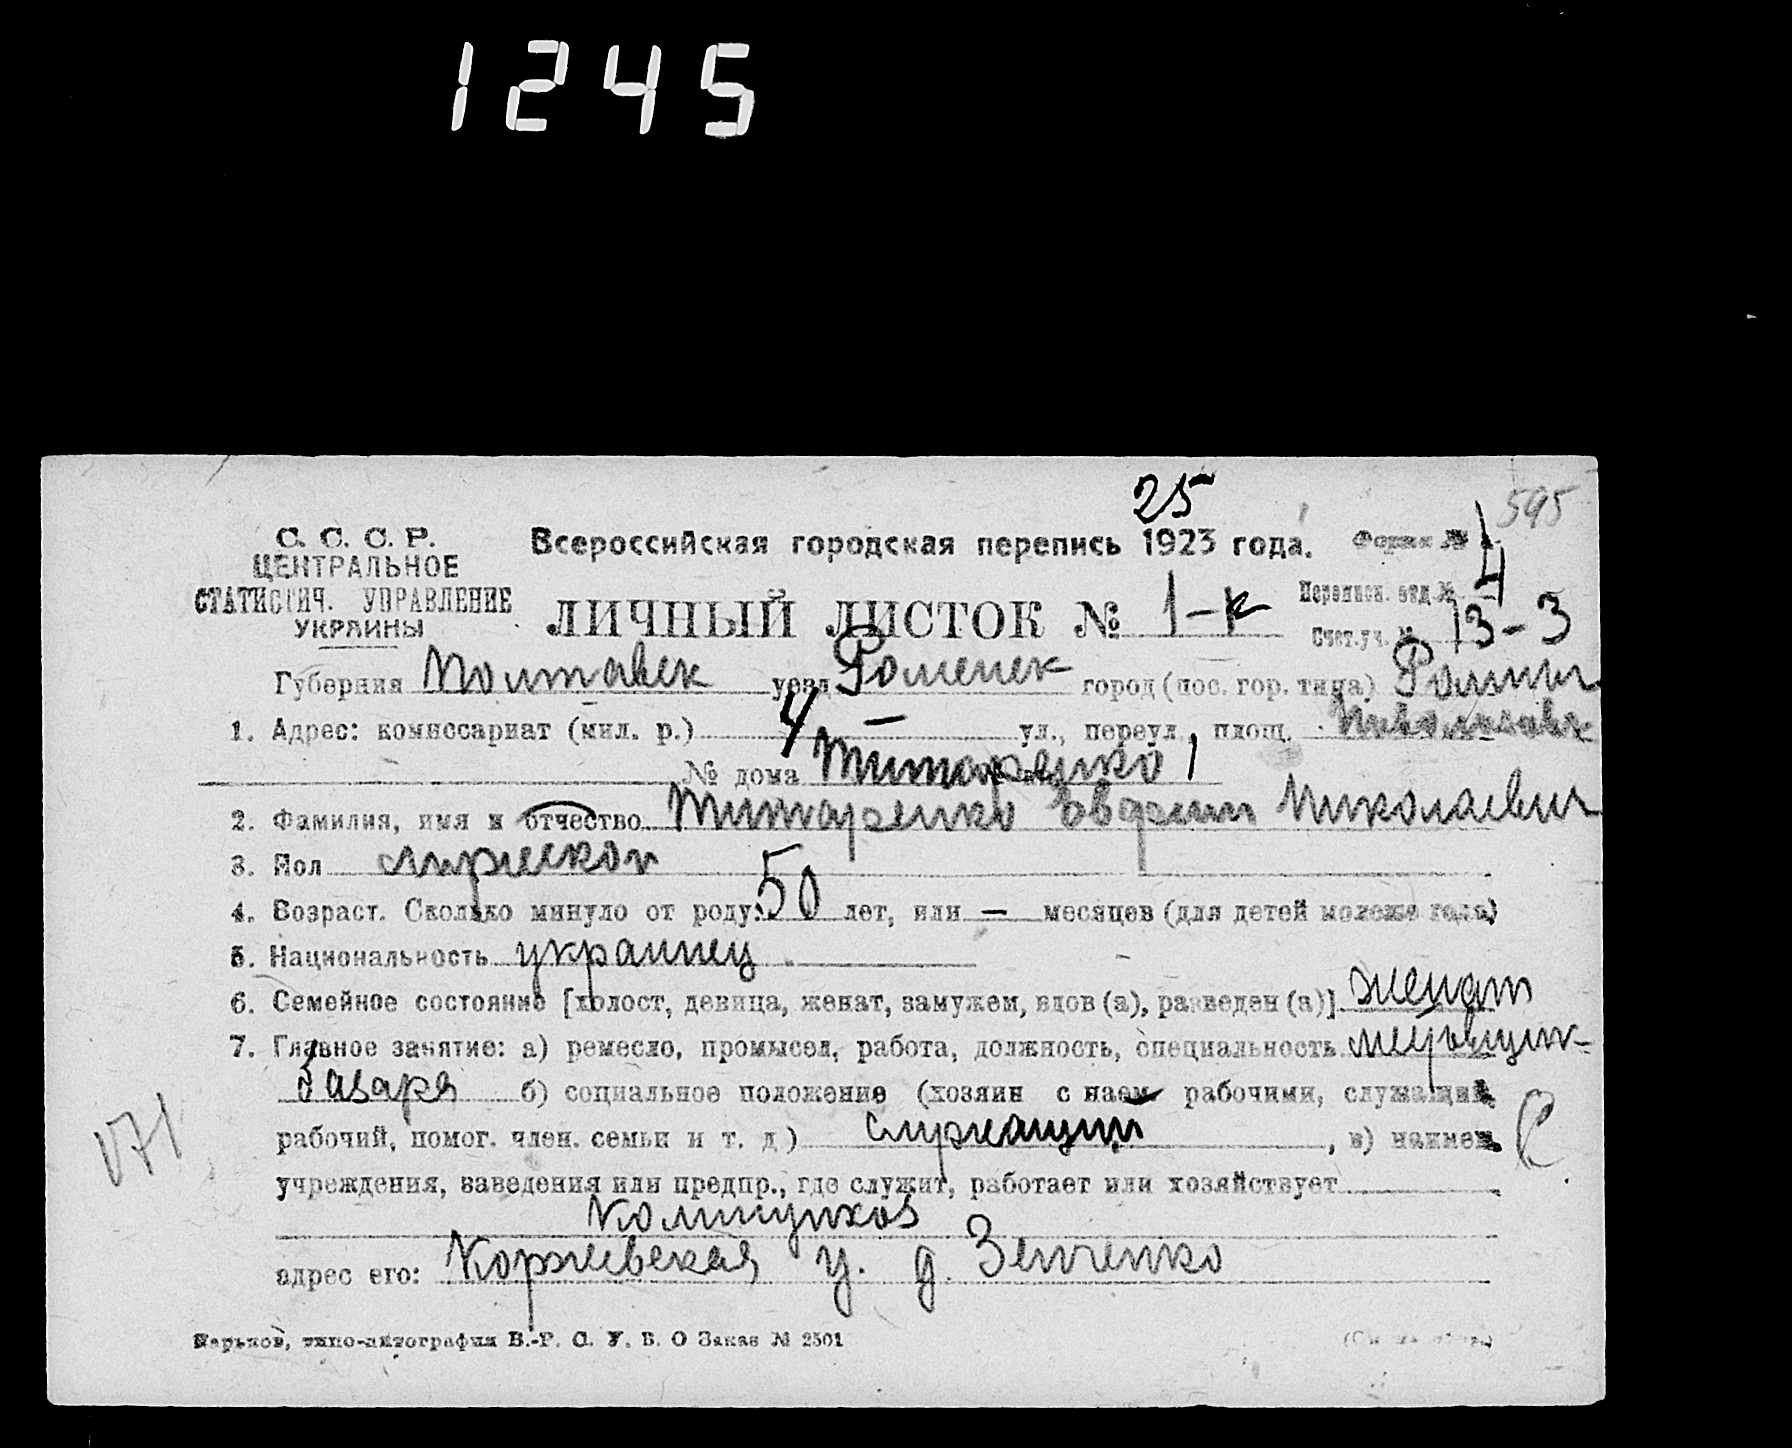 1245
595
25
С. С. С. Р.
ЦЕНТРАЛЬНОЕ
СТАТИСТИЧ. УПРАВЛЕНИЕ
УКРАИНЫ
Всероссийская городская перепись 1923 года.
Форма № 1
ЛИЧНЫЙ ЛИСТОК № 1-к
Переписн. отд. № 4
Счет. уч. № 13-3
Губерния Полтавск уезд Роменск город (пос. гор. типа) Ромны
1. Адрес: комиссариат (мил. р.) 4 — ул., переул., площ.
№ дома Титаренко 1
2. Фамилия, имя и отчество Титаренко Николаевич
3. Пол мужской
4. Возраст. Сколько минуло от роду: 50 лет, или — месяцев (для детей моложе года)
5. Национальность украинец
6. Семейное состояние [холост, девица, женат, замужем, вдов (а), разведен (а)] женат
7. Главное занятие: а) ремесло, промысел, работа, должность, специальность
базара б) социальное положение (хозяин с наем. рабочими, служащий,
рабочий, помог. член. семьи и т. д) служащий, в) наимен.
учреждения, заведения или предпр., где служит, работает или хозяйствует
Комунхоз
адрес его: Коржевская у. д. Зенченко
171
Харьков, типо-литография В.-У. С. У. В. О Заказ № 2501